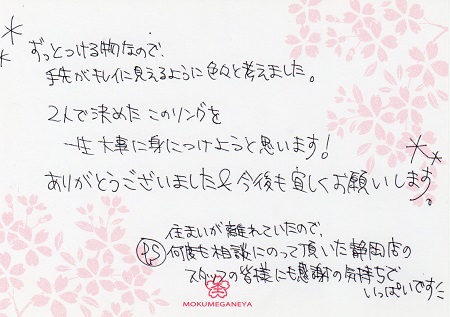 ずっとつける物なので、
手先がキレイに見えるように色々と考えました。
2人で決めた このリングを
一生大事に身につけようと思います!
ありがとうございました& 今後も宜しくお願いします。
住まいが離れていたので、
PS 何度も相談にのって頂いた静岡店の
スタッフの皆様にも感謝の気持ちで
いっぱいです
MOKUMEGANEYA